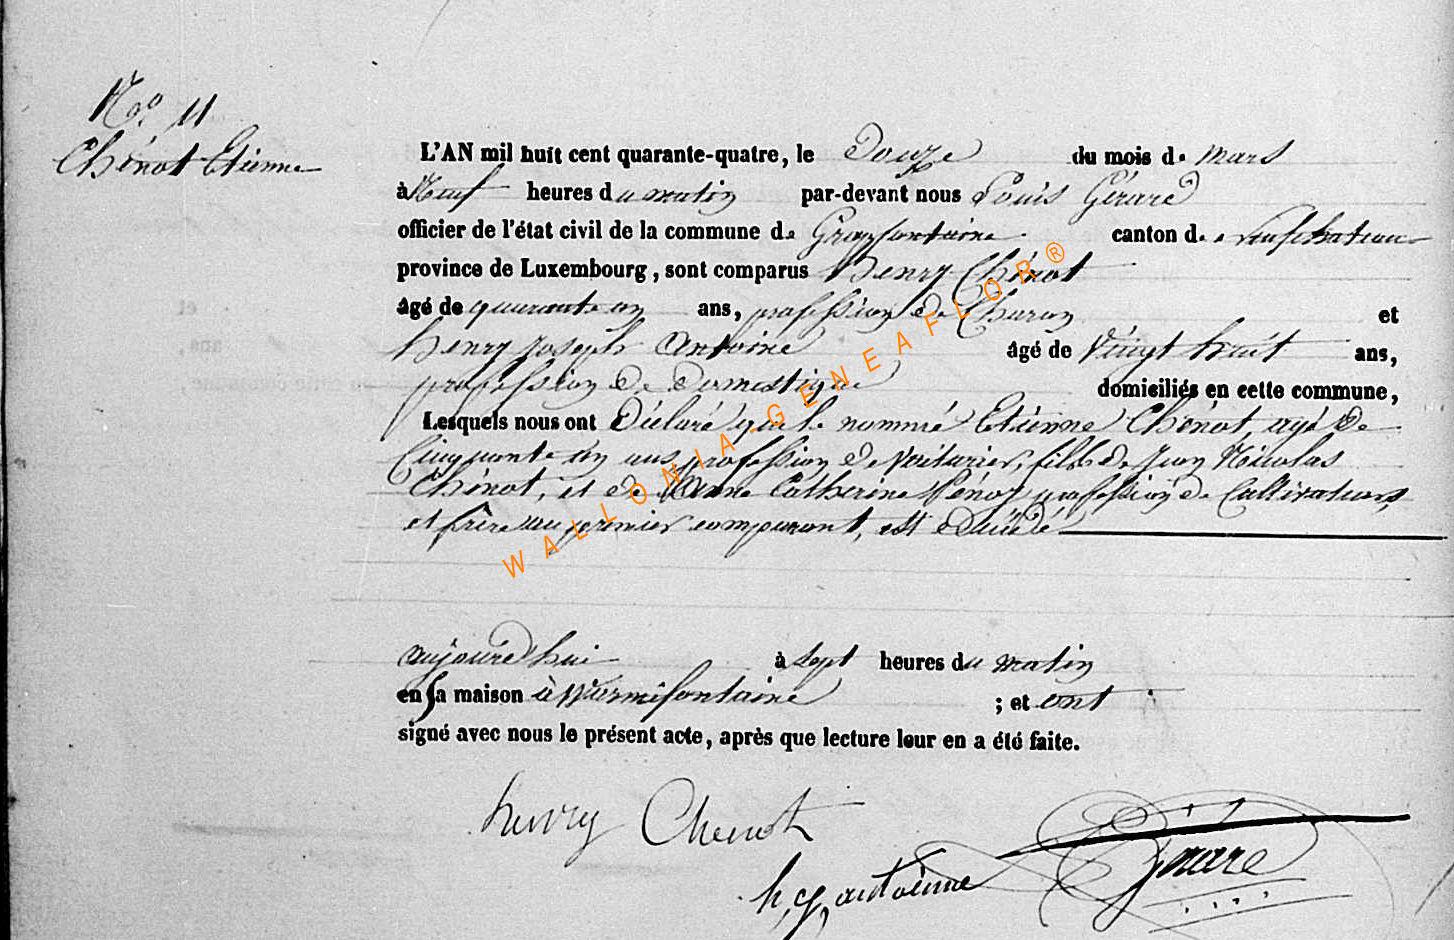 No. 11
Chénot Etienne
L'AN mil huit cent quarante-quatre, le Douze du mois de Mars
à Neuf heures du matin par-devant nous Louis Gérard
officier de l'état civil de la commune de Grapfontaine canton de neufchateau
province de Luxembourg, sont comparus henry Chénot
âgé de quarante un ans, profession de Charon et
henry joseph Antoine âgé de Vingt huit ans,
profession de domestique domiciliés en cette commune,
Lesquels nous ont Déclaré que le nommé Etienne Chénot, agé de
Cinquante un ans, profession de Voiturier, fils de Jean Nicolas
Chénot, et de Anne Catherine profession de Cultivateurs,
et frère au premier comparant, est décédé
aujourd'hui à sept heures du matin
en sa maison à Warmifontaine ; et ont
signé avec nous le présent acte, après que lecture leur en a été faite.
henry Chenot
h, j, antoinne
Gérard
WALLONIA-GENEAFLOR®